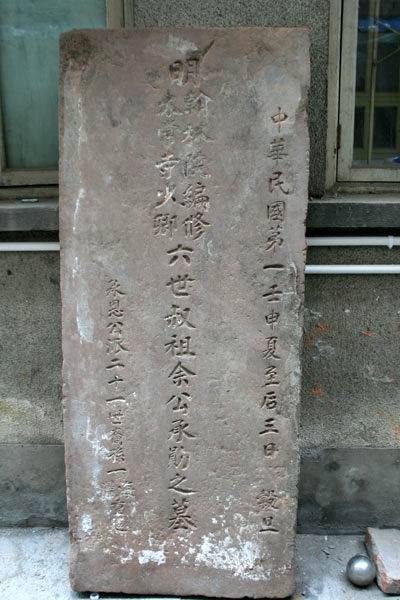 中華民國第一壬申夏至后三日 穀旦
明
翰林院編修
太常寺少卿
六世叔祖余公承勛之墓
承恩公派二十一世裔孫一